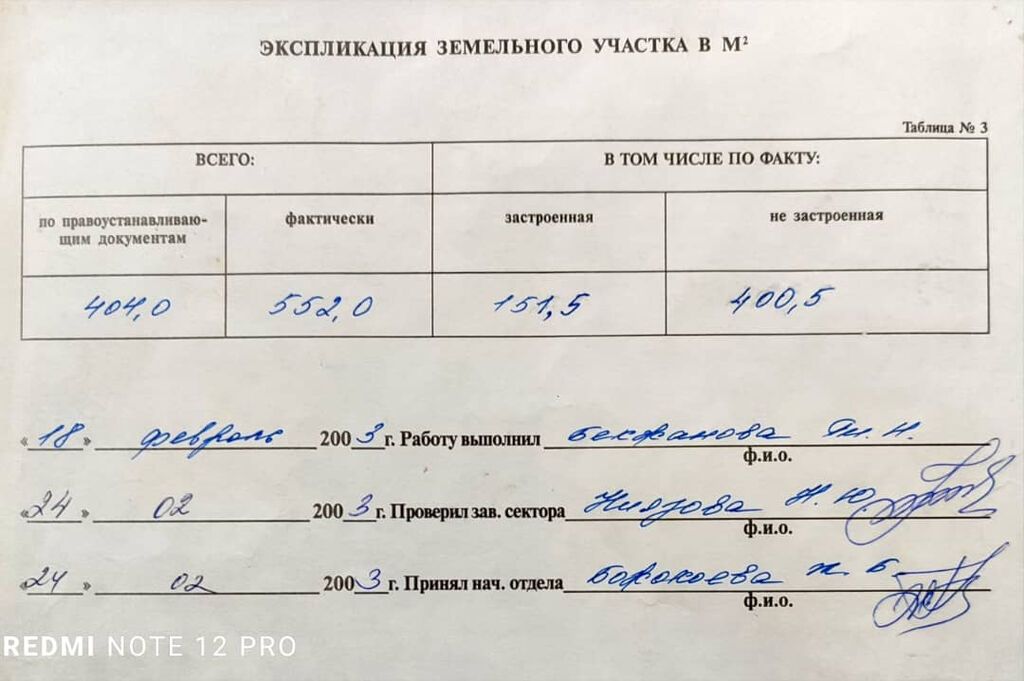 ЭКСПЛИКАЦИЯ ЗЕМЕЛЬНОГО УЧАСТКА В М²
Таблица № 3
ВСЕГО: В ТОМ ЧИСЛЕ ПО ФАКТУ:
по правоустанавливаю- фактически застроенная не застроенная
щим документам
404,0 552,0 151,5 400,5
«18» февраль 2003 г. Работу выполнил Т. Н.
ф.и.о.
«24» 02 2003 г. Проверил зав. сектора Ниязова Н. Ю
ф.и.о.
«24» 02 2003 г. Принял нач. отдела Ж. Б.
ф.и.о.
REDMI NOTE 12 PRO